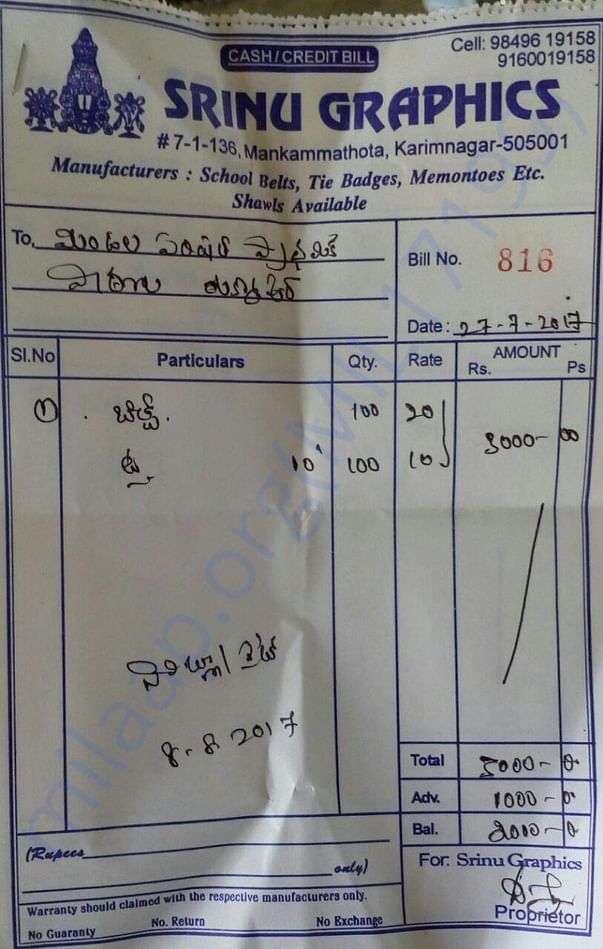 CASH/CREDIT BILL
Cell: 98496 19158
9160019158
SRINU GRAPHICS
# 7-1-136, Mankammathota, Karimnagar-505001
Manufacturers : School Belts, Tie Badges, Memontoes Etc.
Shawls Available
To, మండల పరిషత్ ప్రాథమిక
పాఠశాల
Bill No. 816
Date : 27-7-2017
Sl.No Particulars Qty. Rate AMOUNT
Rs. Ps
1 . బెల్ట్. 100 20
3000-00
టై 10' 100 10
8.8.2017
Total 3000-0
Adv. 1000-0
Bal. 2000-0
(Rupees
only)
For. Srinu Graphics
Proprietor
Warranty should claimed with the respective manufacturers only.
No Guaranty No. Return No Exchange
milaap.org(MIL171993)